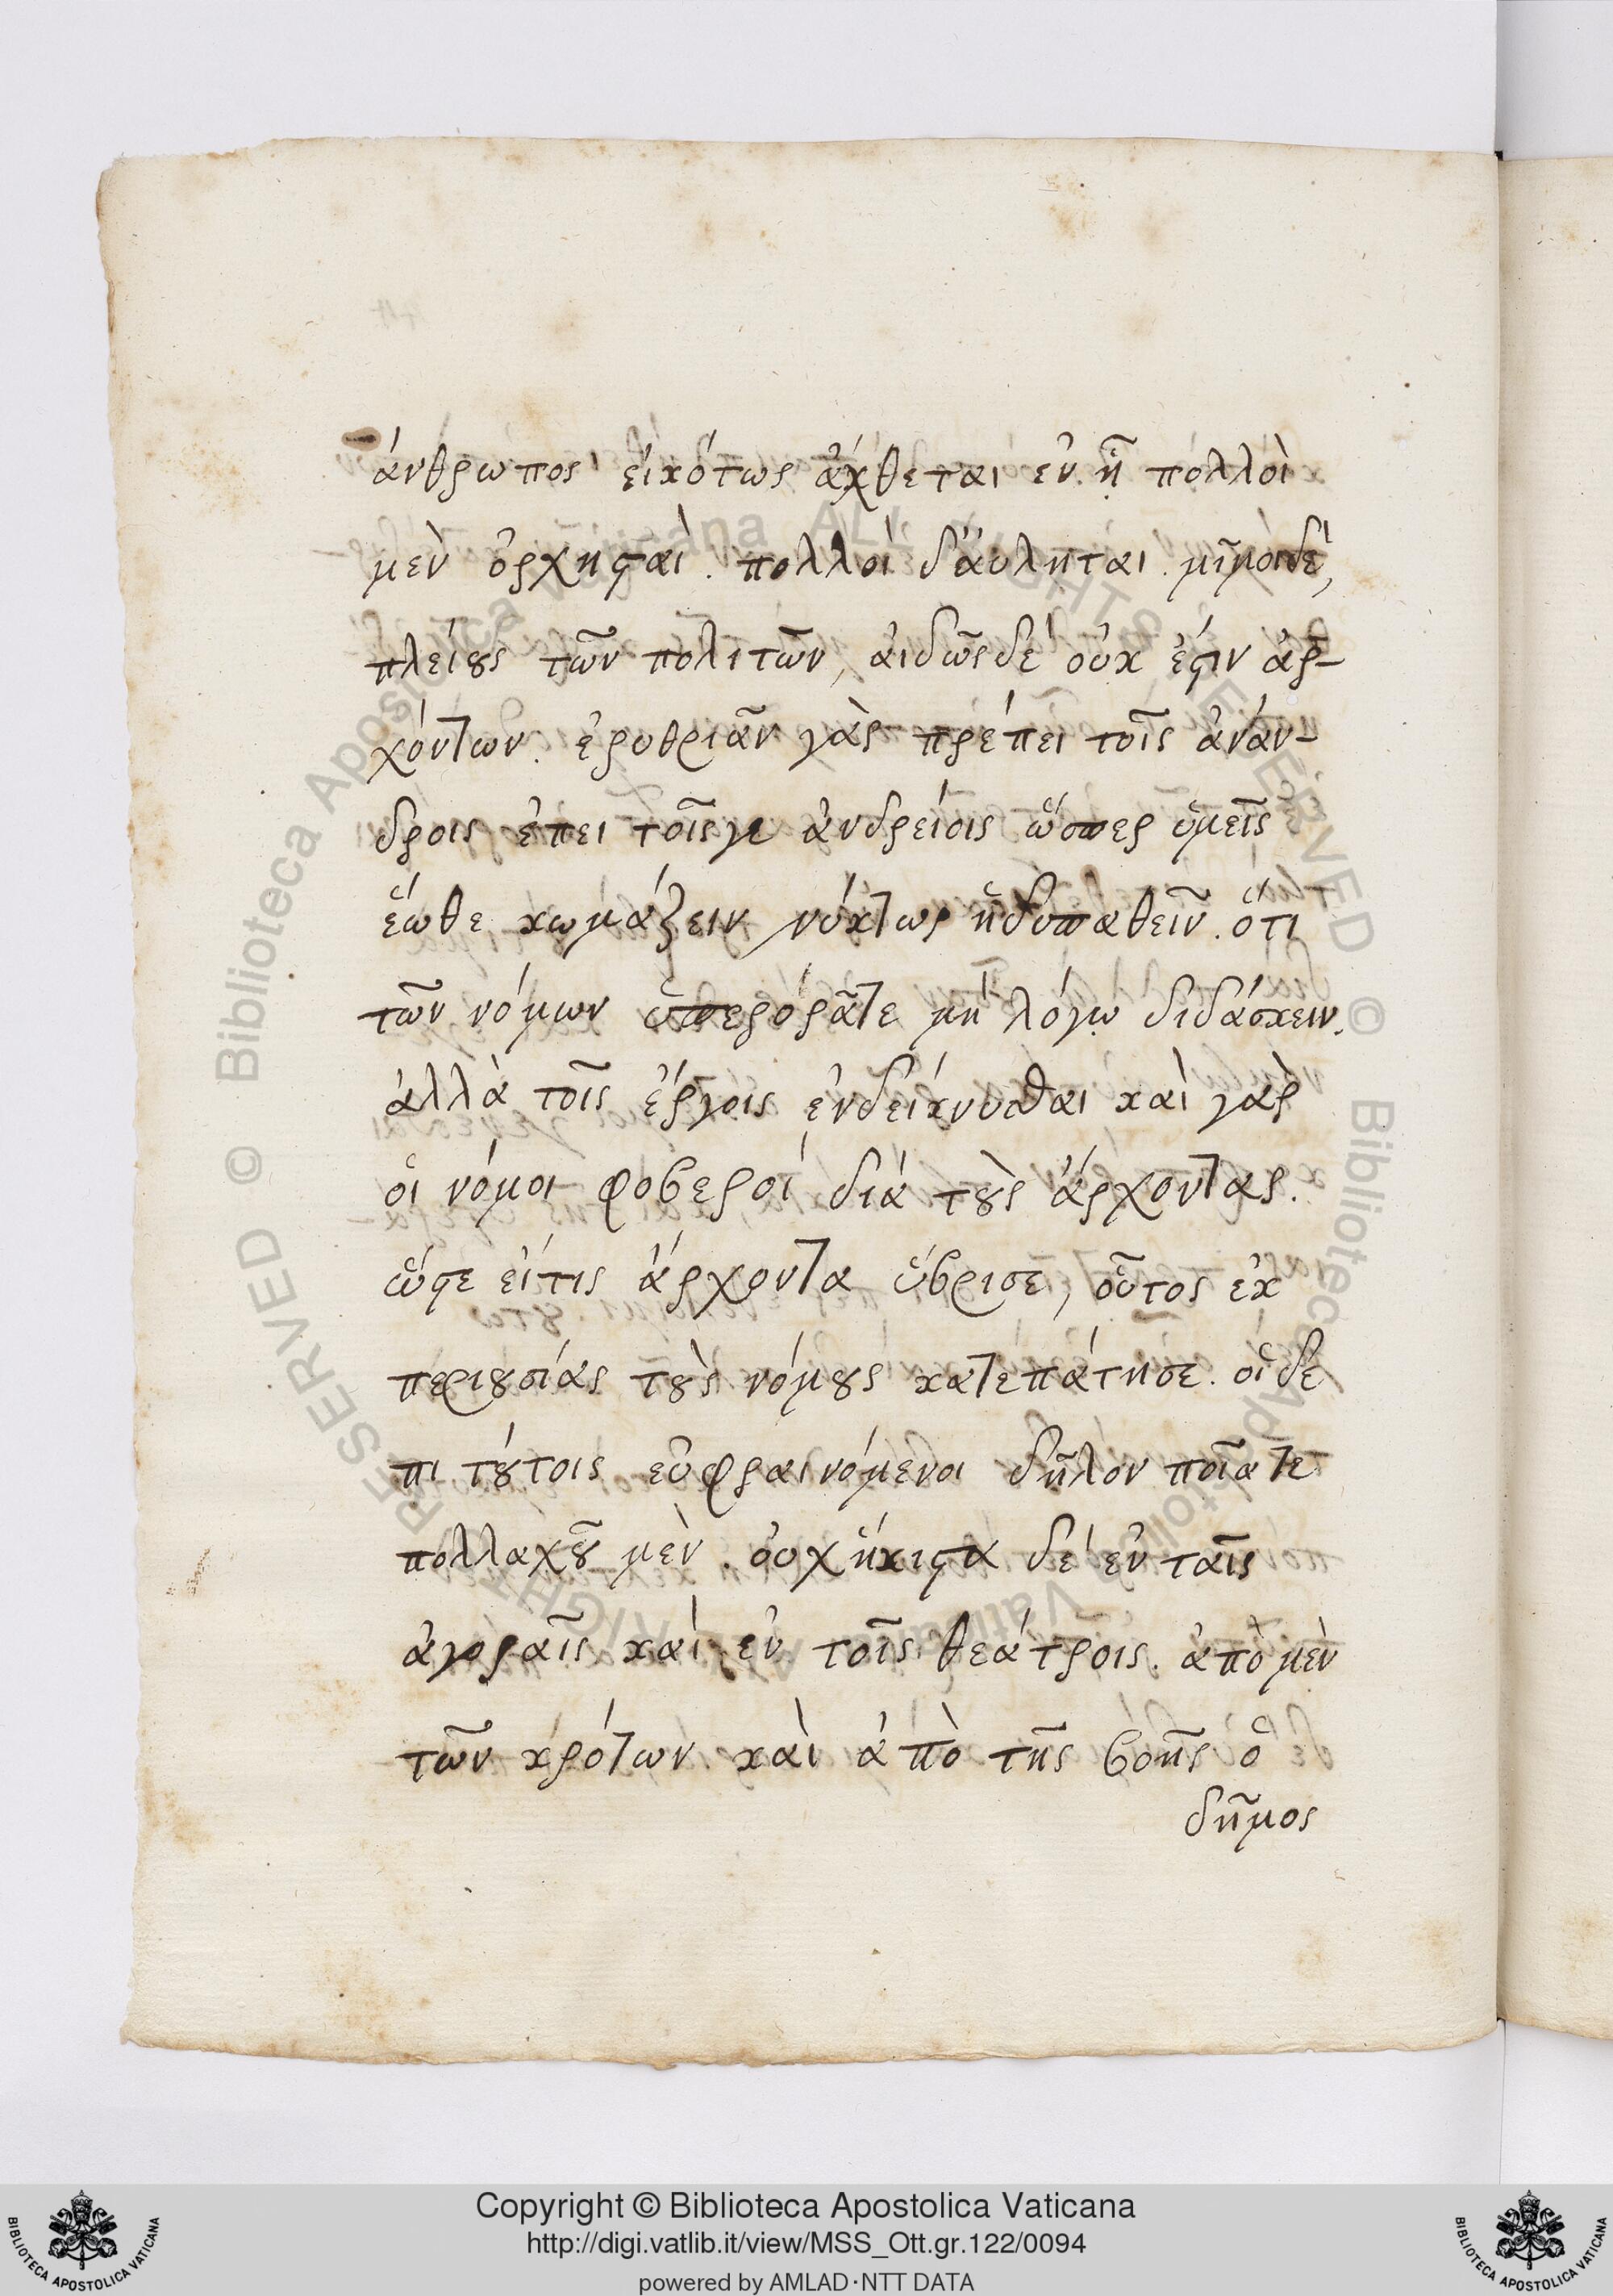 άνθρωπος εἰκότως ἄχθεται ἐν ᾗ πολλοὶ
μὲν ὀρχηϛαὶ. πολλοὶ δ'ἀυληται. μῖμοιδὲ,
πλείȣς τῶν πολιτῶν, αἰδῶςδὲ οὐκ ἔϛιν ἀρ-
χόντων. ἐρυθριᾶν γὰρ πρέπει τοῖς ἀνάν-
δροις ἐπει τοῖςγε ἀνδρείοις ὥσπερ ὑμεῖς
ἕωθε κωμάζειν νύκτωρ ἡδυπαθεῖν. ὅτι
τῶν νόμων ὑπερόρᾶτε μὴ λόγῳ διδάσκειν.
ἀλλὰ τοῖς ἔργοις ἐνδείκνυσθαι καὶ γὰρ
οἱ νόμοι φοβεροί διά τȣ̀ς ἄρχοντας.
ὥϛε εἴτις ἄρχοντα ὕβρισε, οὗτος ἐκ
περιȣσίας τȣ̀ς νόμȣς κατεπάτησε. οἱ δε
πι τȣ́τοις εὐφραινόμενοι δῆλον ποῖατε
πολλαχȣ͂ μὲν. ὀυχ ἥκιϛα δέ ἐν ταῖς
ἀγοραῖς καὶ ἐν τοῖς θεάτροις. ἀπὸ μὲν
τῶν κρότων καὶ ἀπὸ τῆς βοῆς ὁ
δῆμος
Copyright © Biblioteca Apostolica Vaticana
http://digi.vatlib.it/view/MSS_Ott.gr.122/0094
powered by AMLAD·NTT DATA